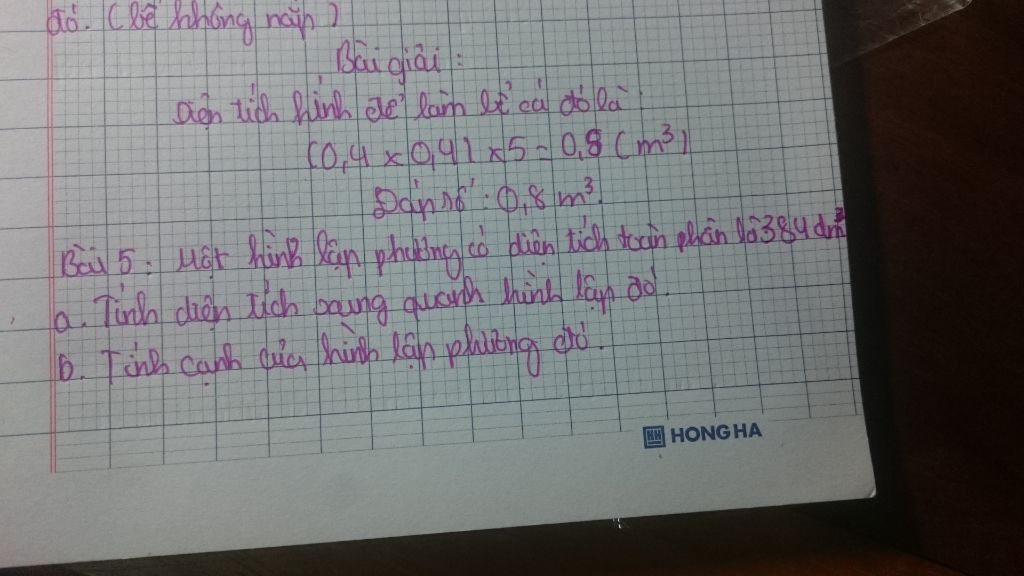 đó. (bể không nắp)
Bài giải:
Diện tích kính để làm bể cá đó là:
(0,4 x 0,4) x 5 = 0,8 (m³)
Đáp số: 0,8 m³.
Bài 5: Một hình lập phương có diện tích toàn phần là 384 dm²
a. Tính diện tích xung quanh hình lập đó.
b. Tính cạnh của hình lập phương đó.
HH HONG HA